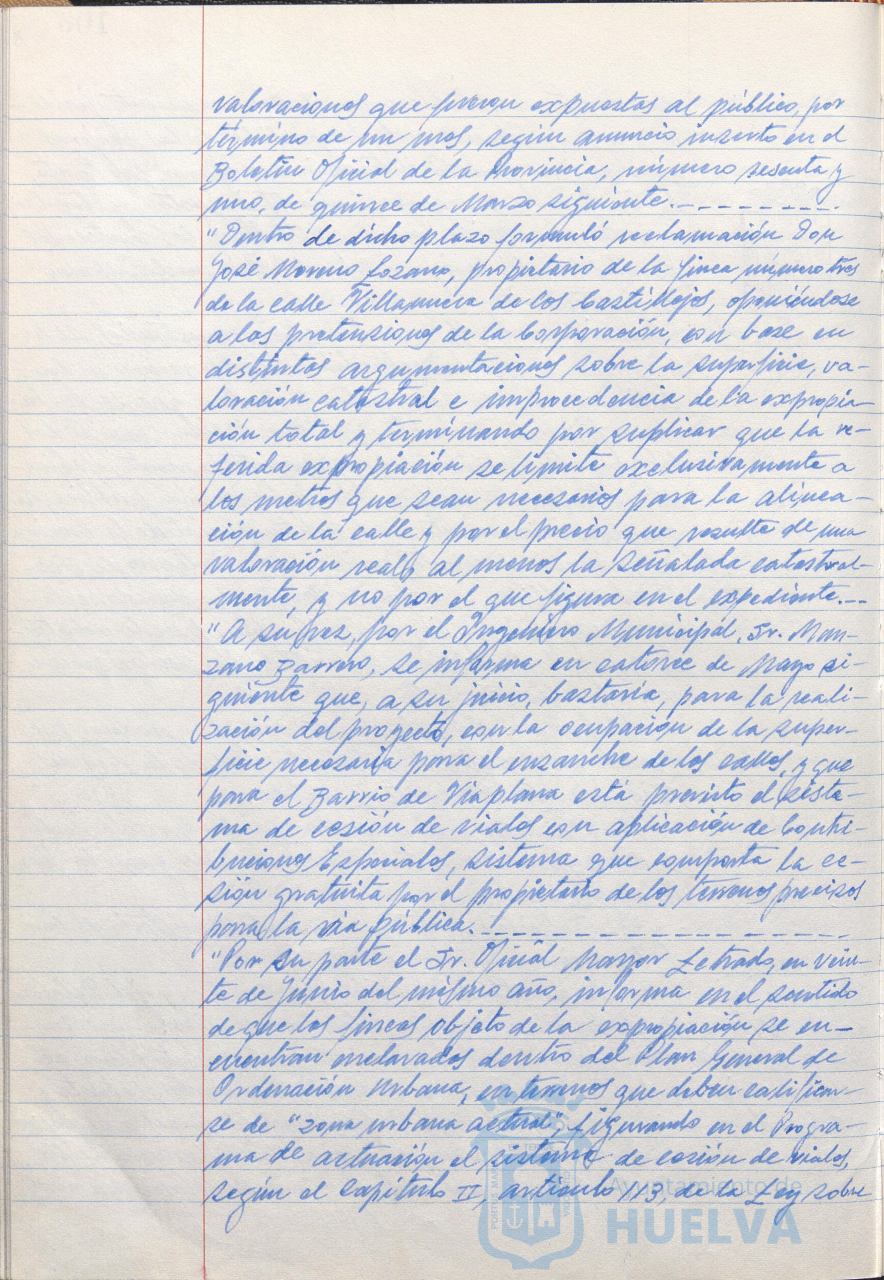 valoraciones que fueron expuestas al público, por
término de un mes, según anuncio inserto en el
Boletín Oficial de la Provincia, número sesenta y
uno, de quince de Marzo siguiente.- - - - - - - - -
"Dentro de dicho plazo formuló reclamación Don
José Moreno Lozano, propietario de la finca número tres
de la calle Villanueva de los Castillejos, oponiéndose
a las pretensiones de la Corporación, con base en
distintas argumentaciones sobre la superficie, va-
loración catastral e improcedencia de la expropia-
ción total y terminando por suplicar que la re-
ferida expropiación se limite exclusivamente a
los metros que sean necesarios para la alinea-
ción de la calle y por el precio que resulte de una
valoración real y al menos la señalada catastral-
mente, y no por el que figura en el expediente.--
"A su vez, por el Ingeniero Municipal, Sr. Man-
zano Barrero, se informa en catorce de Mayo si-
guiente que, a su juicio, bastaría, para la reali-
zación del proyecto, con la ocupación de la super-
ficie necesaria para el ensanche de las calles, y que
para el Barrio de Viaplana está previsto el siste-
ma de cesión de viales con aplicación de Contri-
buciones Especiales, sistema que comporta la ce-
sión gratuita por el propietario de los terrenos precisos
para la vía pública.- - - - - - - - - - - - - - - -
"Por su parte el Sr. Oficial Mayor Letrado, en vein-
te de Junio del mismo año, informa en el sentido
de que las fincas objeto de la expropiación se en-
cuentran enclavadas dentro del Plan General de
Ordenación Urbana, en terrenos que deben calificar-
se de "zona urbana actual", figurando en el Progra-
ma de actuación el sistema de cesión de viales,
según el Capítulo II, artículo 113, de la Ley sobre
Ayuntamiento de
HUELVA